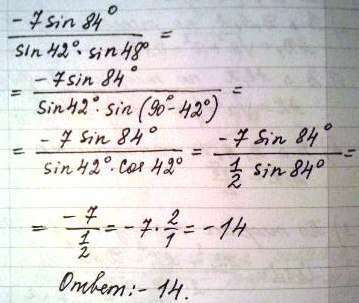 -7 sin 84° / sin 42° · sin 48° =
= -7 sin 84° / sin 42° · sin (90° - 42°) =
= -7 sin 84° / sin 42° · cos 42° = -7 sin 84° / 1/2 sin 84° =
= -7 / 1/2 = -7 · 2/1 = -14
Ответ: -14.